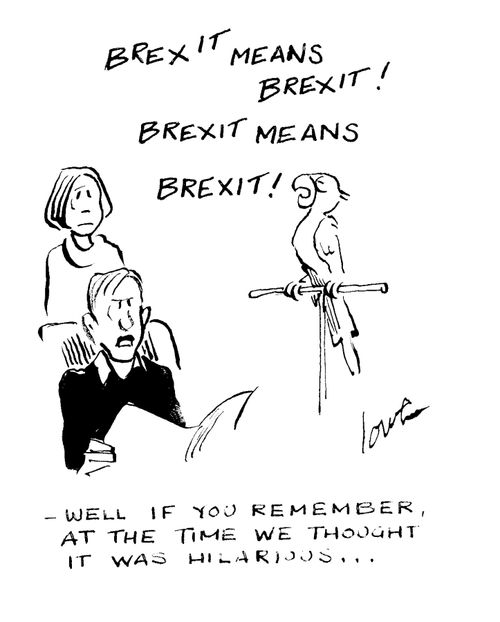 BREXIT MEANS
BREXIT!
BREXIT MEANS
BREXIT!
– WELL IF YOU REMEMBER,
AT THE TIME WE THOUGHT
IT WAS HILARIOUS...